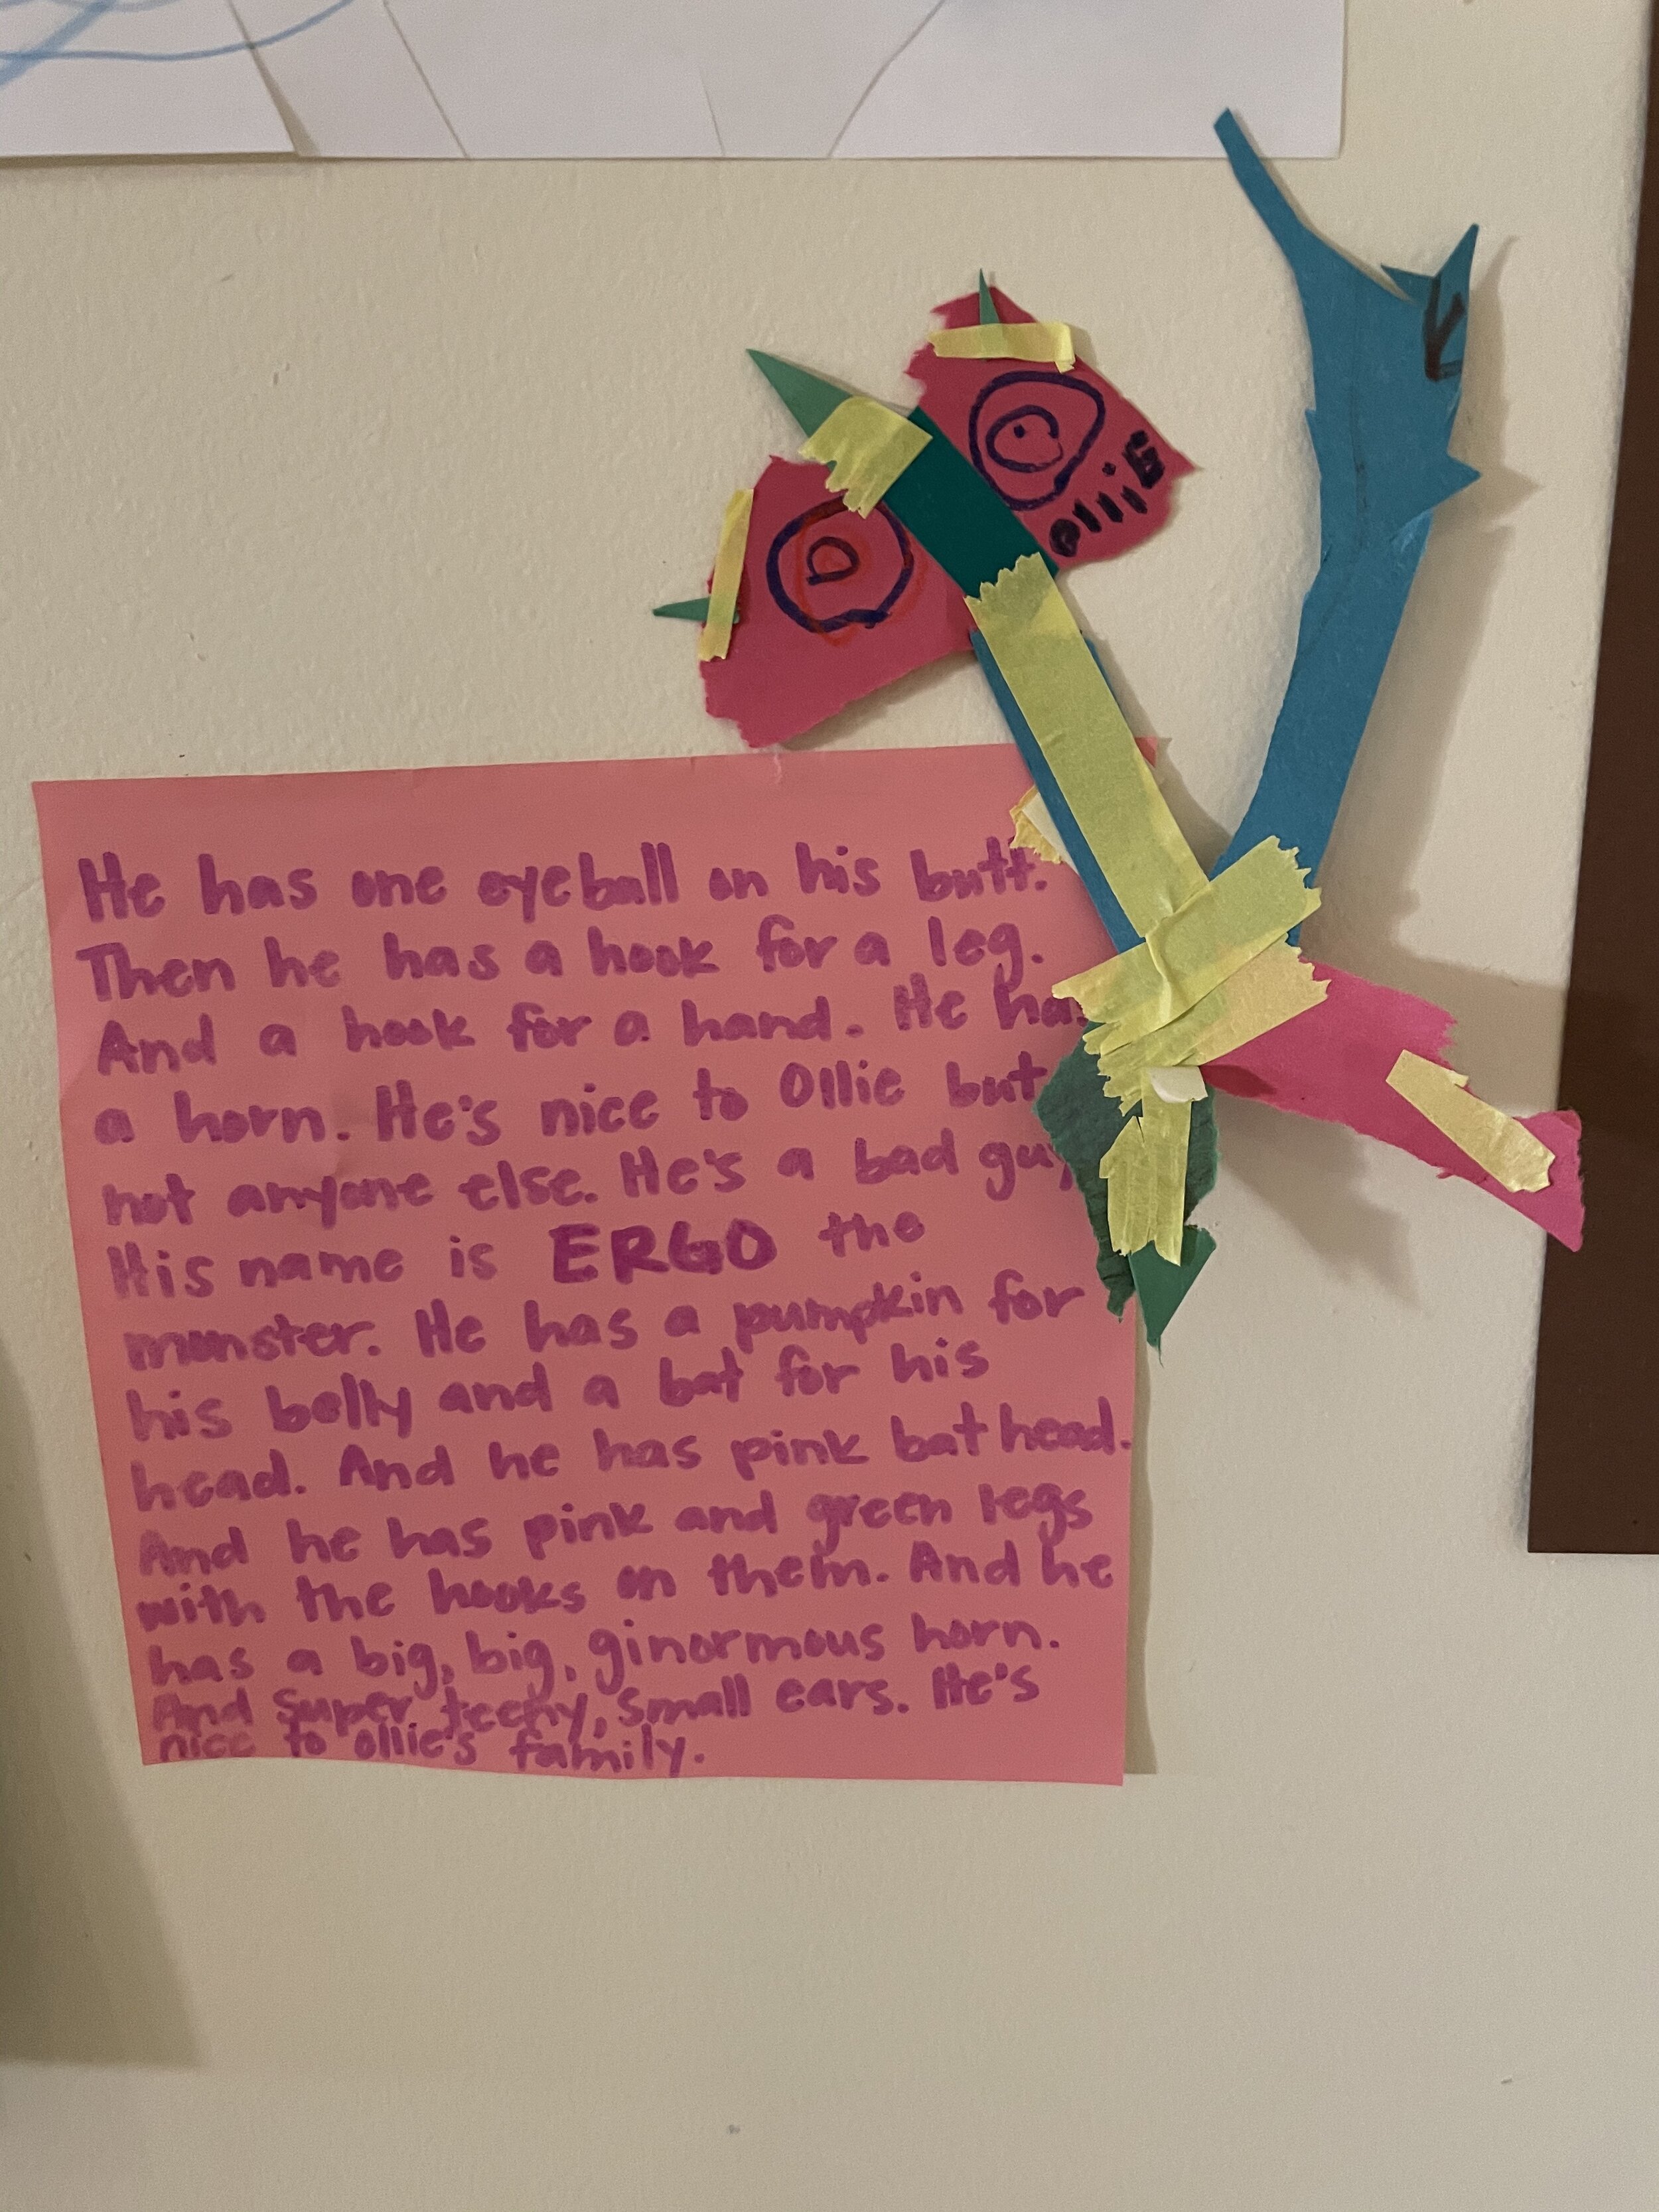 olliE
He has one eyeball on his butt.
Then he has a hook for a leg.
And a hook for a hand. He has
a horn. He's nice to Ollie but
not anyone else. He's a bad guy
His name is ERGO the
monster. He has a pumpkin for
his belly and a bat for his
head. And he has pink bat head.
And he has pink and green legs
with the hooks on them. And he
has a big, big, ginormous horn.
And super teeny, small ears. He's
nice to ollie's family.